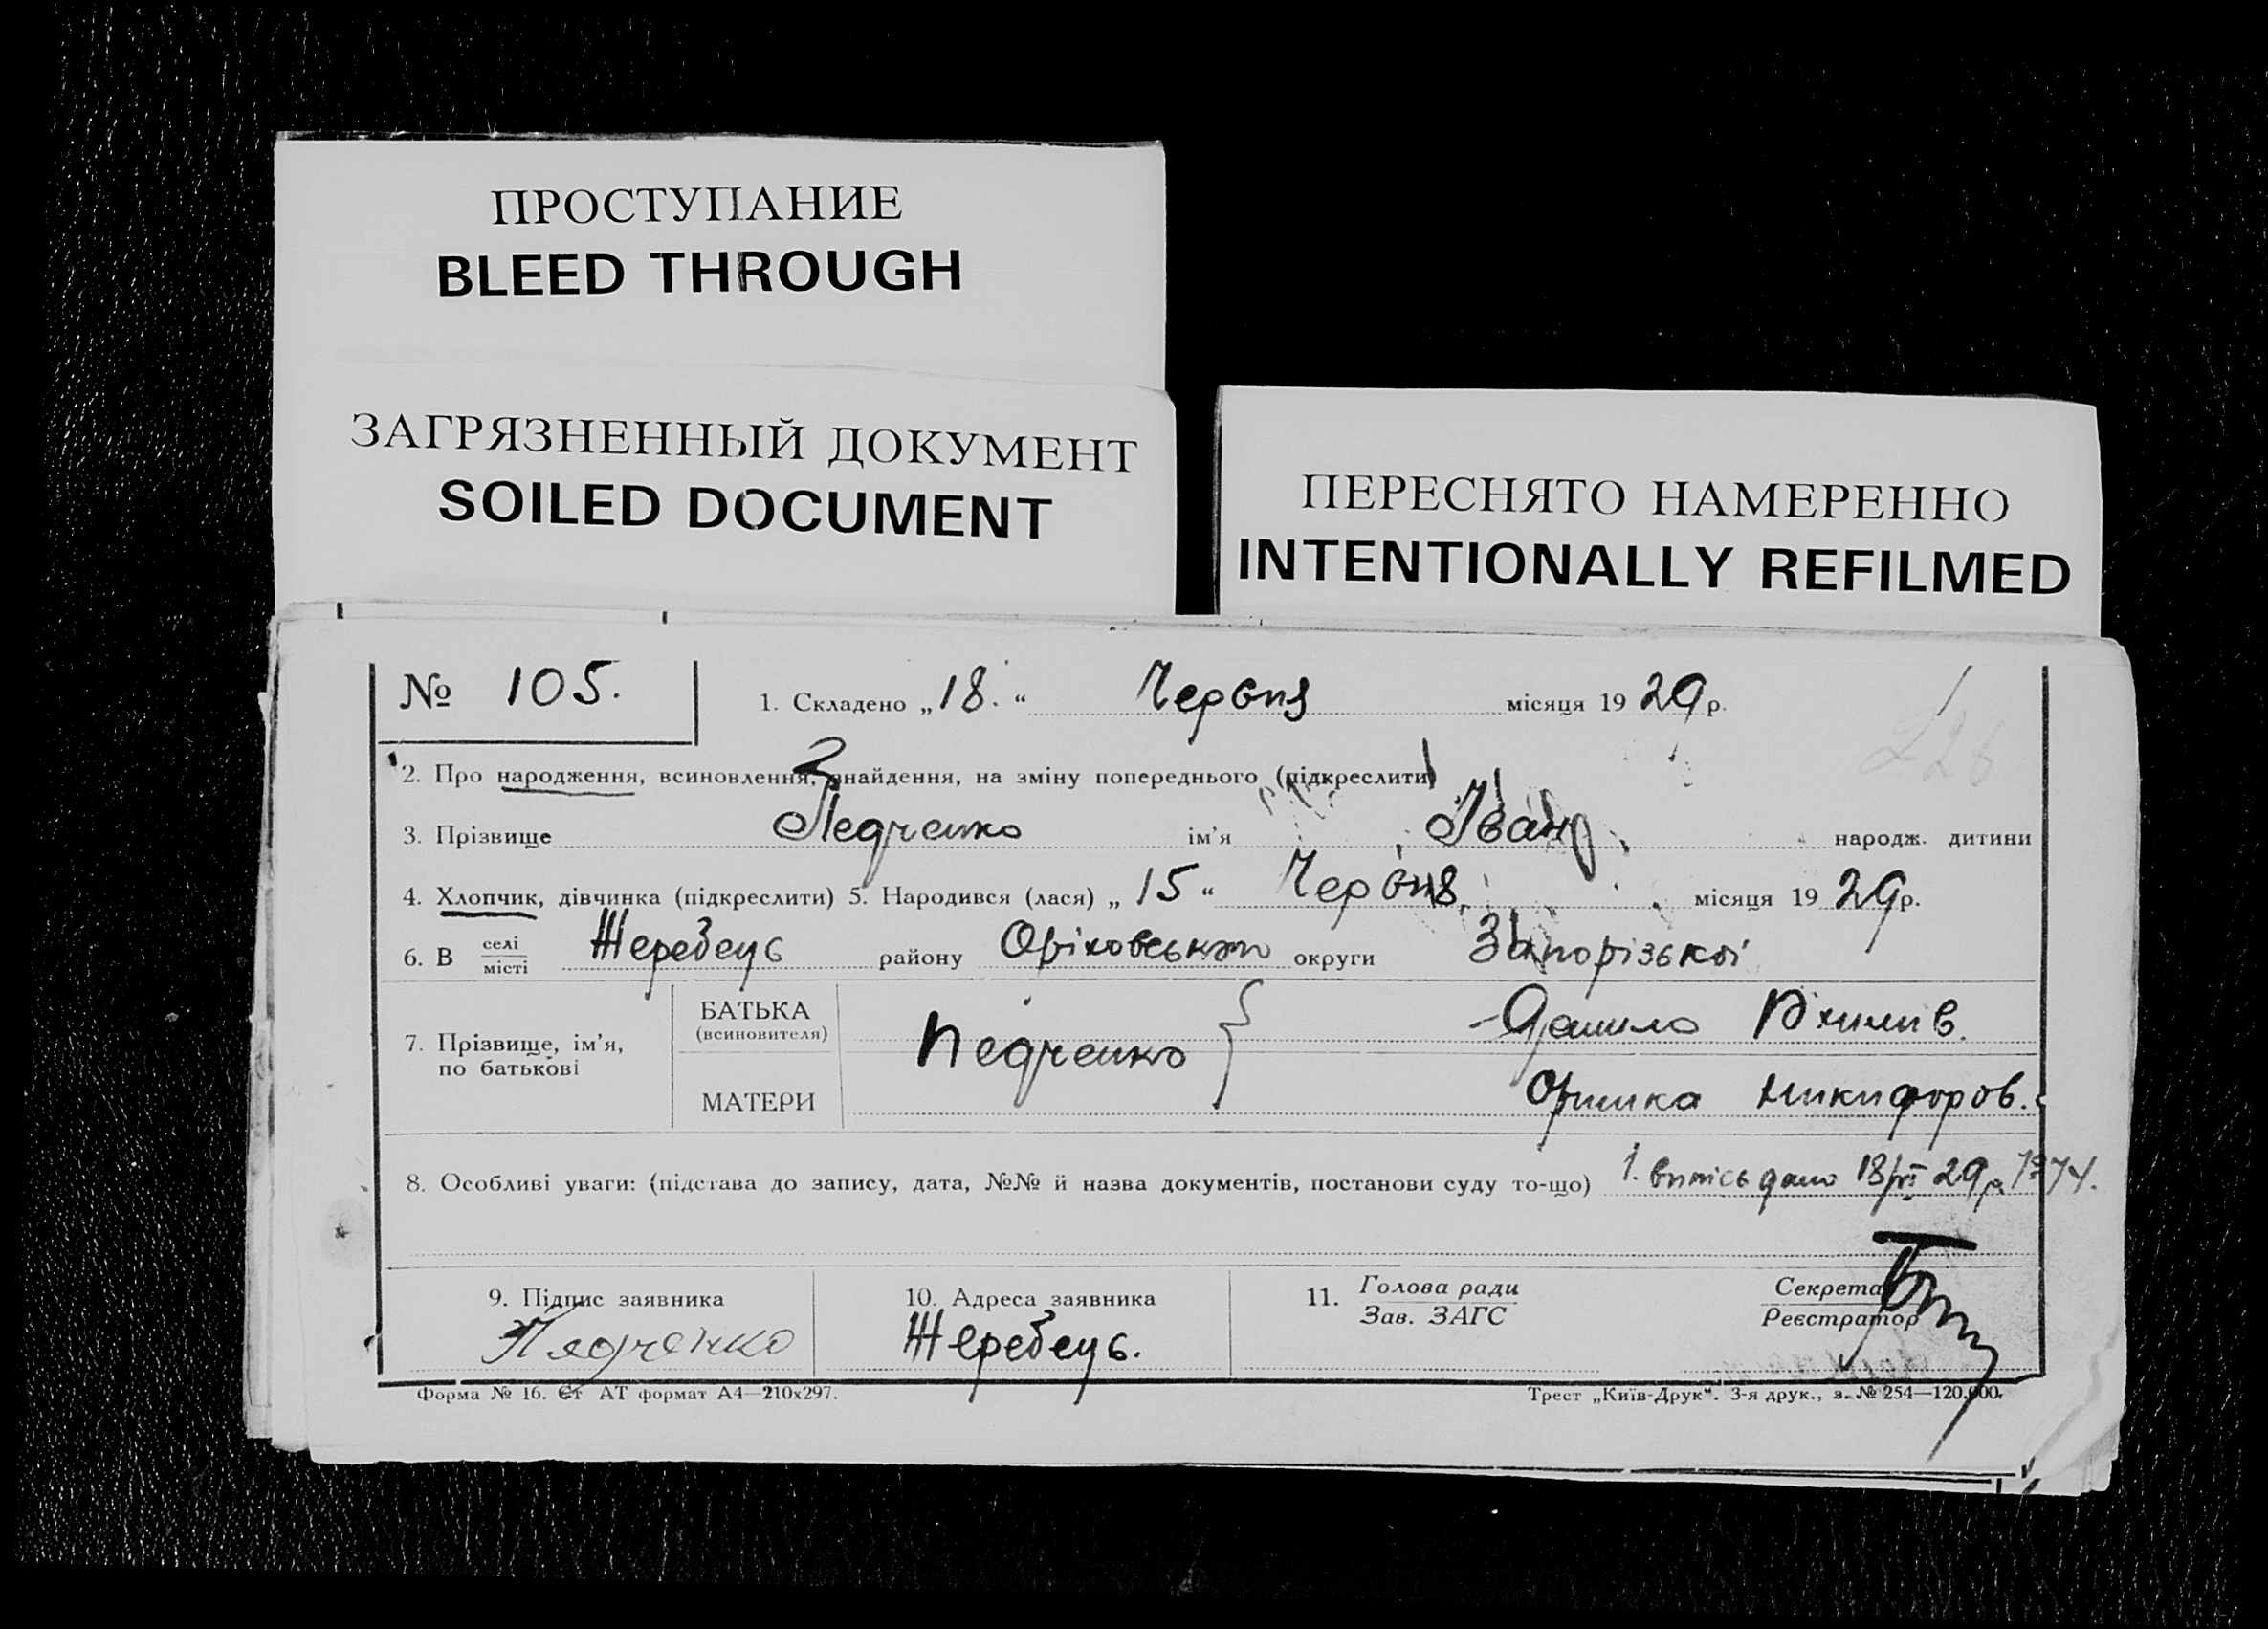 ПРОСТУПАНИЕ
BLEED THROUGH
ЗАГРЯЗНЕННЫЙ ДОКУМЕНТ
SOILED DOCUMENT
ПЕРЕСНЯТО НАМЕРЕННО
INTENTIONALLY REFILMED
№ 105. 1. Складено „18.“ Червня місяця 1929р.
2. Про народження, всиновлення, знайдення, на зміну попереднього (підкреслити)
3. Прізвище Педченко ім'я Іван народж. дитини
4. Хлопчик, дівчинка (підкреслити) 5. Народився (лася) „15“ Червня місяця 1929р.
6. В селі місті Жеребець району Оріховського округи Запорізької
7. Прізвище, ім'я, по батькові
БАТЬКА (всиновителя) Педченко Данило
МАТЕРИ Оришка Никифоров.
8. Особливі уваги: (підстава до запису, дата, №№ й назва документів, постанови суду то-що) 1. витісь дано 18/VI 29р.
9. Підпис заявника 10. Адреса заявника 11. Голова ради Зав. ЗАГС Секретар Реєстратор
Педченко Жеребець.
Форма № 16. Ст АТ формат А4—210х297. Трест „Київ-Друк“. 3-я друк., з. № 254—120.000.